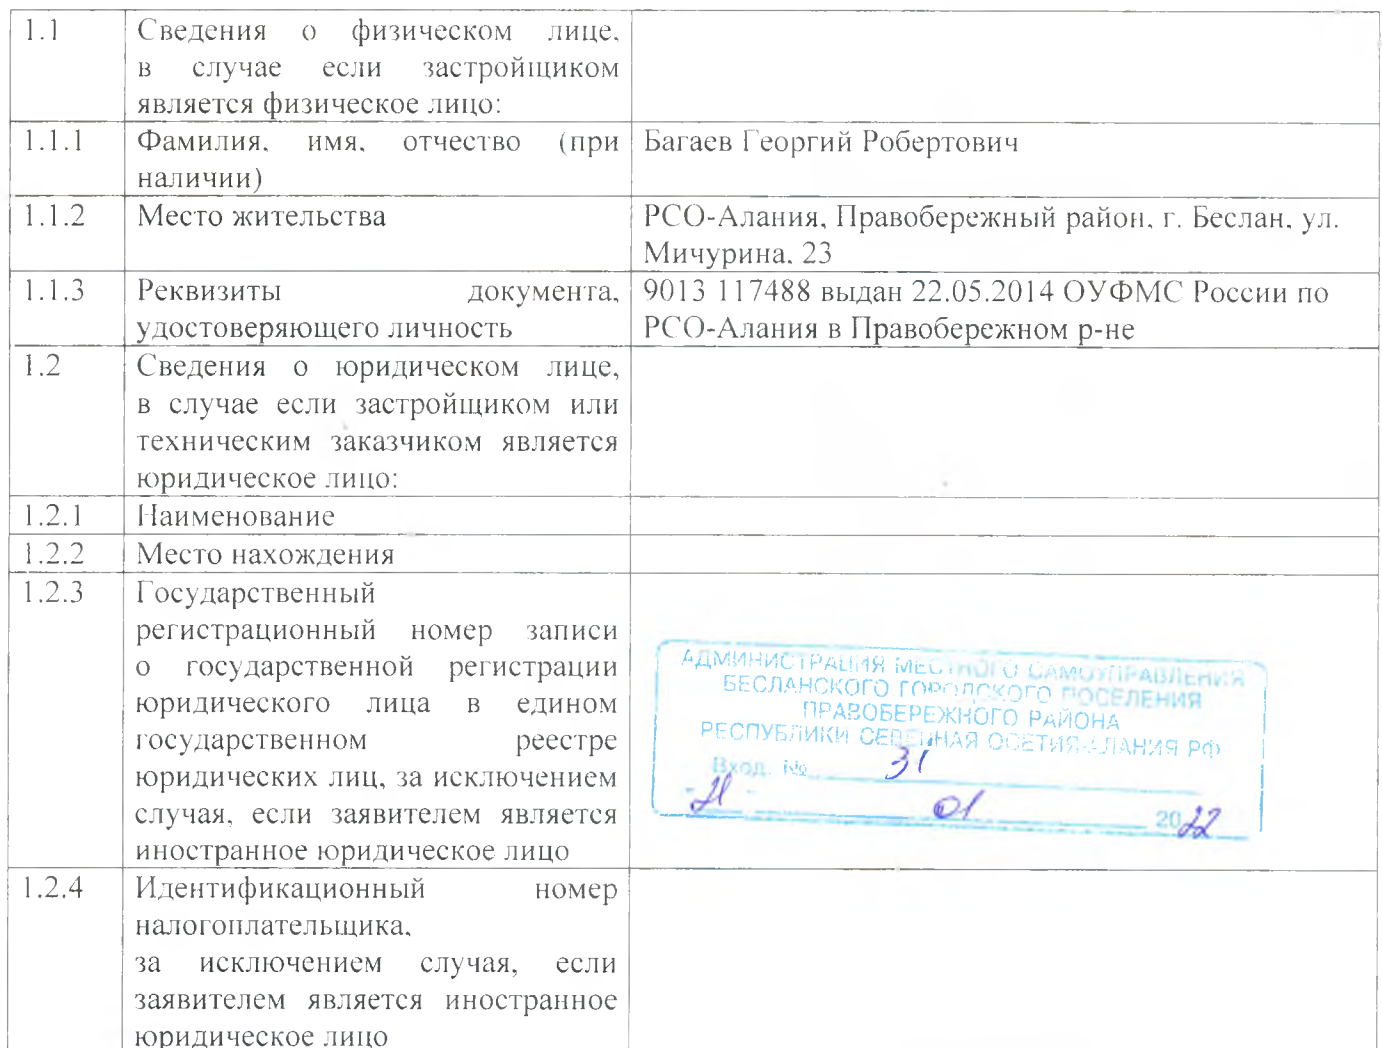 1.1 Сведения о физическом лице,
в случае если застройщиком
является физическое лицо:
1.1.1 Фамилия, имя, отчество (при Багаев Георгий Робертович
наличии)
1.1.2 Место жительства РСО-Алания, Правобережный район, г. Беслан, ул.
Мичурина, 23
1.1.3 Реквизиты документа, 9013 117488 выдан 22.05.2014 ОУФМС России по
удостоверяющего личность РСО-Алания в Правобережном р-не
1.2 Сведения о юридическом лице,
в случае если застройщиком или
техническим заказчиком является
юридическое лицо:
1.2.1 Наименование
1.2.2 Место нахождения
1.2.3 Государственный
регистрационный номер записи
о государственной регистрации
юридического лица в едином
государственном реестре
юридических лиц, за исключением
случая, если заявителем является
иностранное юридическое лицо
АДМИНИСТРАЦИЯ МЕСТНОГО САМОУПРАВЛЕНИЯ
БЕСЛАНСКОГО ГОРОДСКОГО ПОСЕЛЕНИЯ
ПРАВОБЕРЕЖНОГО РАЙОНА
РЕСПУБЛИКИ СЕВЕРНАЯ ОСЕТИЯ-АЛАНИЯ РФ
Вход. № 31
01 2022
1.2.4 Идентификационный номер
налогоплательщика,
за исключением случая, если
заявителем является иностранное
юридическое лицо